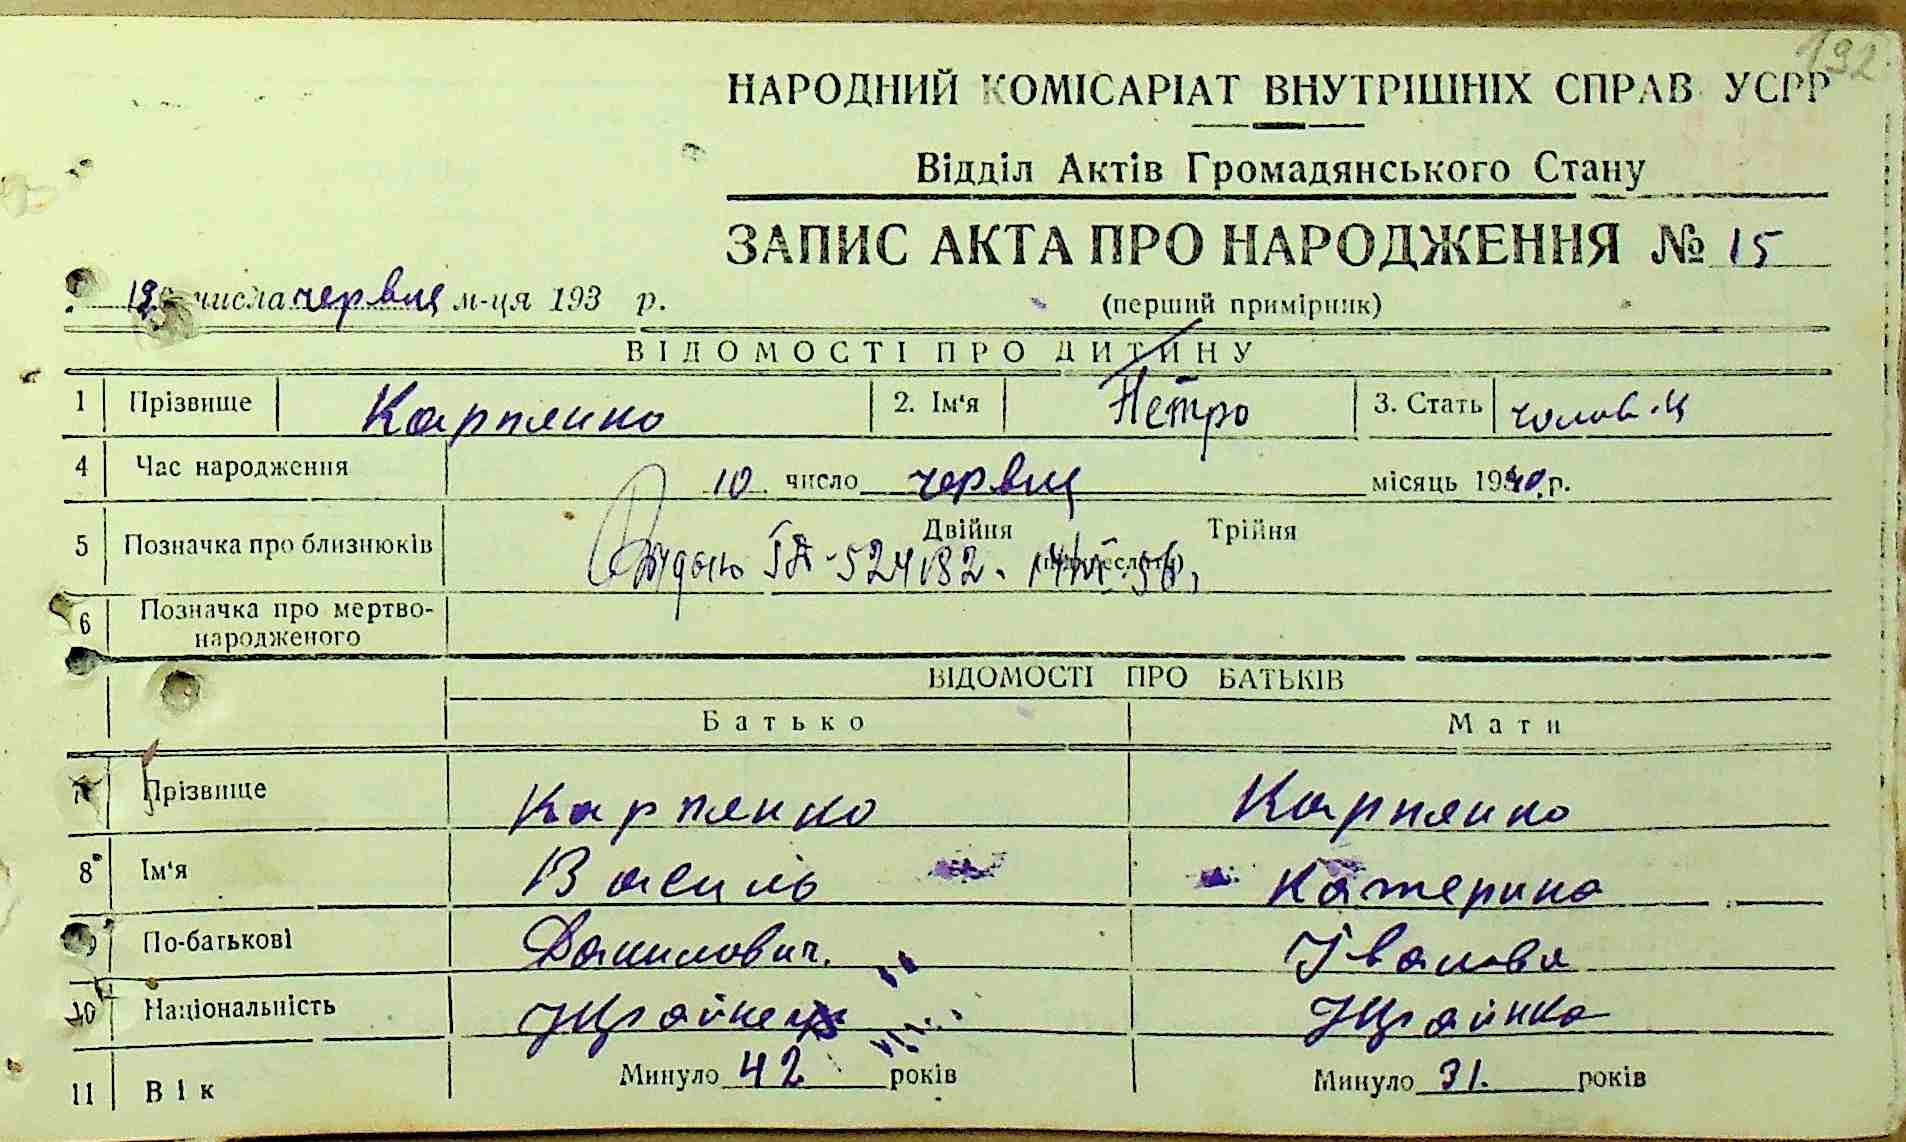 192
НАРОДНИЙ КОМІСАРІАТ ВНУТРІШНІХ СПРАВ УСРР
Відділ Актів Громадянського Стану
ЗАПИС АКТА ПРО НАРОДЖЕННЯ № 15
числа червця м-ця 193 р.
(перший примірник)
ВІДОМОСТІ ПРО ДИТИНУ
1 Прізвище Карпянко 2. Ім'я Петро 3. Стать чолов.ц
4 Час народження 10 число червця місяць 1940 р.
5 Позначка про близнюків Двійня Трійня
(підкреслити)
524182. 56
6 Позначка про мертво-
народженого
ВІДОМОСТІ ПРО БАТЬКІВ
Батько Мати
7 Прізвище Карпянко Карпянко
8 Ім'я Василь Катерина
9 По-батькові Данилович. Іванова
10 Національність Україн Українка
11 Вік Минуло 42 років Минуло 31. років